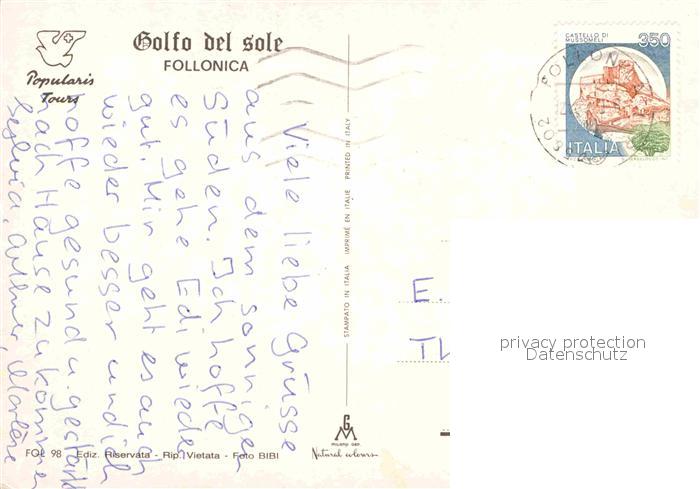 Golfo del sole
FOLLONICA
Popularis
Tours
Viele liebe Grüsse
aus dem sonnigen
Süden. Ich hoffe
es gehe Edi wieder
gut. Mir geht es auch
wieder besser und ich
hoffe gesund u. gestärkt
nach Hause zu kommen
FOL 98 Ediz. Riservata - Rip. Vietata - Foto BIBI
STAMPATO IN ITALIA IMPRIMÉ EN ITALIE PRINTED IN ITALY
GM
Natural colours
CASTELLO DI
MUSSOMELI
350
ITALIA
E.
privacy protection
Datenschutz